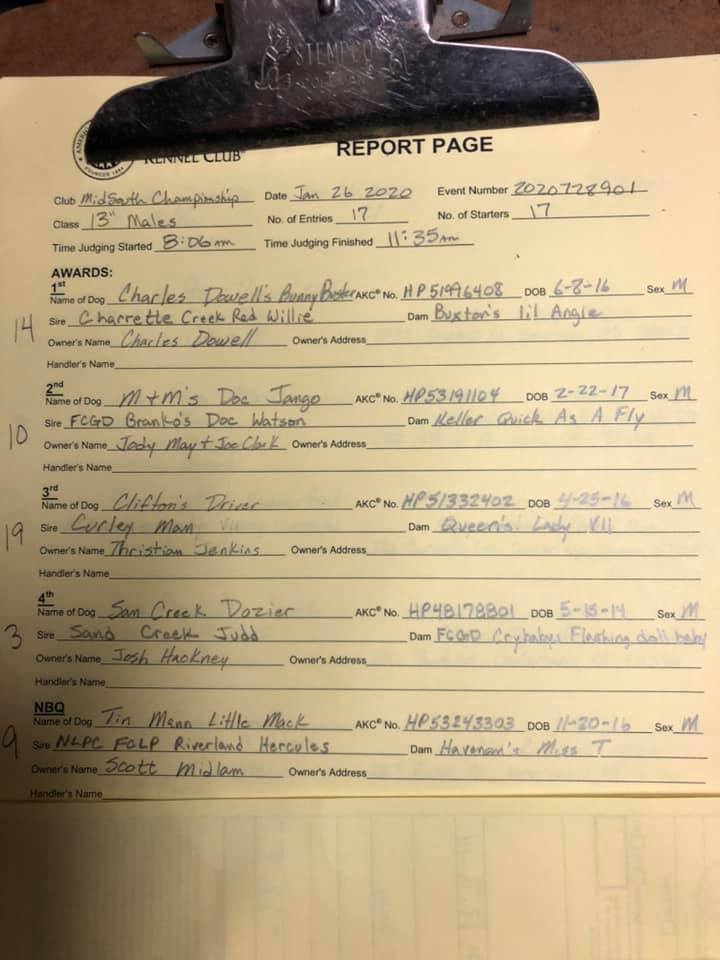 STEMPCO
AMERI
FOUNDED 1884
KENNEL CLUB
REPORT PAGE
Club MidSouth Championship Date Jan 26 2020 Event Number 2020728901
Class 13" Males No. of Entries 17 No. of Starters 17
Time Judging Started 8:06 AM Time Judging Finished 11:35 AM
AWARDS:
1st
Name of Dog Charles Dowell's Bunny Buster AKC® No. HP51996408 DOB 6-8-16 Sex M
14 Sire Charrette Creek Red Willie Dam Buxton's lil Angie
Owner's Name Charles Dowell Owner's Address
Handler's Name
2nd
Name of Dog M+M's Doc Jango AKC® No. HP53191104 DOB 2-22-17 Sex M
10 Sire FCGD Branko's Doc Watson Dam Keller Quick As A Fly
Owner's Name Jody May + Joe Clark Owner's Address
Handler's Name
3rd
Name of Dog Clifton's Driver AKC® No. HP51332402 DOB 4-25-16 Sex M
19 Sire Curley Mam VII Dam Queen's Lady VII
Owner's Name Thristian Jenkins Owner's Address
Handler's Name
4th
Name of Dog San Creek Dozier AKC® No. HP48178801 DOB 5-15-14 Sex M
3 Sire Sand Creek Judd Dam FCGD Crybabys Flashing doll baby
Owner's Name Josh Hackney Owner's Address
Handler's Name
NBQ
Name of Dog Tin Mann Little Mack AKC® No. HP53243303 DOB 11-20-16 Sex M
9 Sire NLPC FCLP Riverland Hercules Dam Miss T
Owner's Name Scott Midlam Owner's Address
Handler's Name